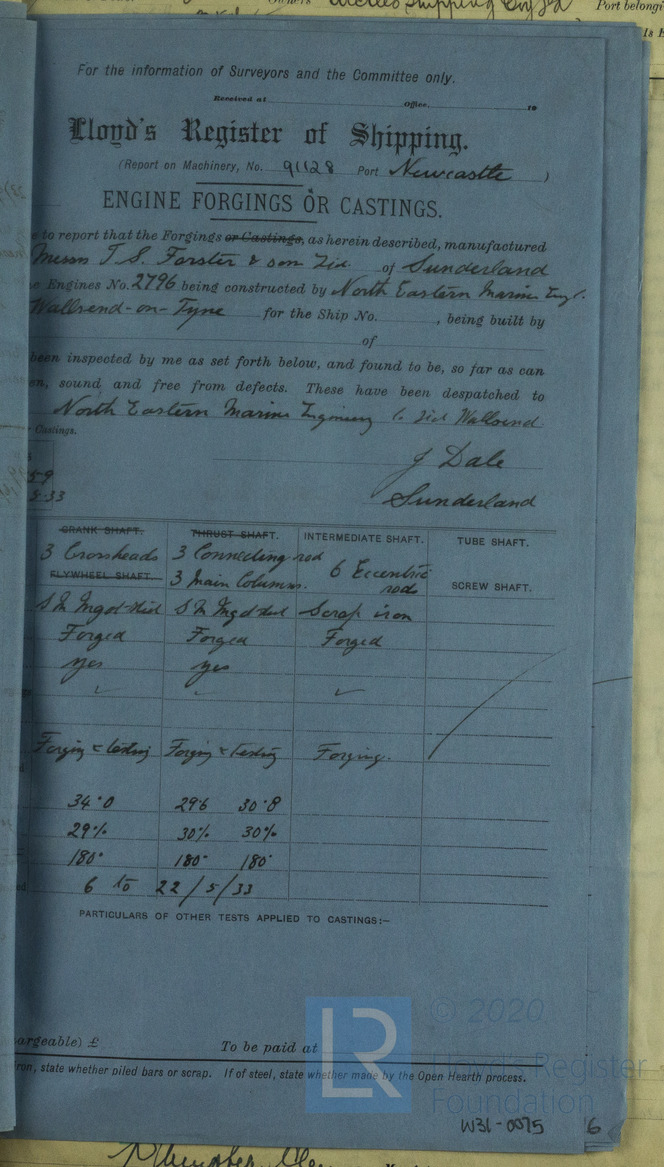 Owners
Port belongi
For the information of Surveyors and the Committee only.
Received at Office, 19
Lloyd's Register of Shipping.
(Report on Machinery, No. 91128 Port Newcastle )
ENGINE FORGINGS OR CASTINGS.
e to report that the Forgings or Castings, as herein described, manufactured
Messrs T. S. Forster & Son Ltd. of Sunderland
e Engines No. 2796 being constructed by North Eastern Marine Eng.
Wallsend-on-Tyne for the Ship No. , being built by
of
been inspected by me as set forth below, and found to be, so far as can
en, sound and free from defects. These have been despatched to
North Eastern Marine Engineering Co Ltd Wallsend.
Castings.
J Dale
59
5.33
Sunderland
CRANK SHAFT. THRUST SHAFT. INTERMEDIATE SHAFT. TUBE SHAFT.
3 Crossheads 3 Connecting rod 6 Eccentric
FLYWHEEL SHAFT. 3 Main Columns. rods SCREW SHAFT.
S M Ingot steel S M Ingot steel Scrap iron
Forged Forged Forged
yes yes
Forging & testing Forging & Testing Forging.
34.0 29.6 30.8
29% 30% 30%
180° 180° 180°
6 to 22/5/33
PARTICULARS OF OTHER TESTS APPLIED TO CASTINGS:—
argeable) £ To be paid at
iron, state whether piled bars or scrap. If of steel, state whether made by the Open Hearth process.
LR
© 2020
Lloyd's Register
Foundation
W31-0075
6